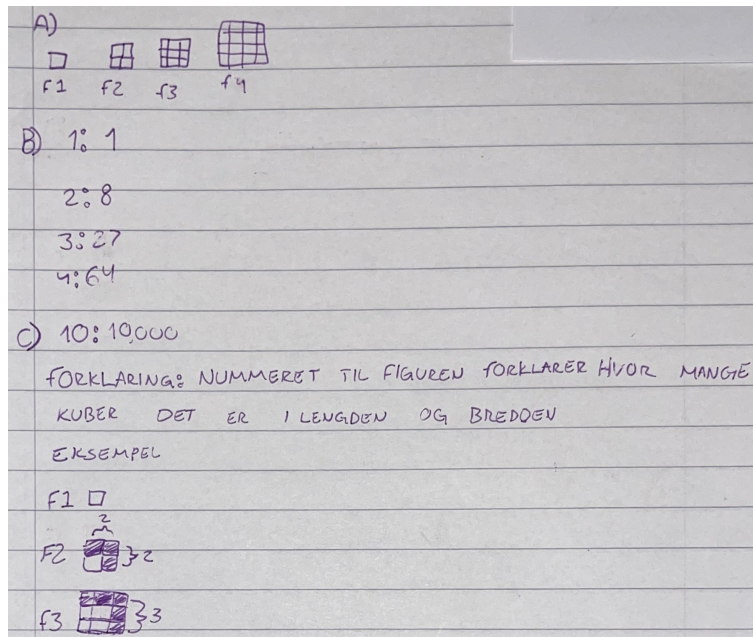 A)
F1 F2 f3 f4
B) 1: 1
2: 8
3: 27
4: 64
C) 10: 10,000
FORKLARING: NUMMERET TIL FIGUREN FORKLARER HVOR MANGE
KUBER DET ER I LENGDEN OG BREDDEN
EKSEMPEL
F1
2
F2 2
f3 3